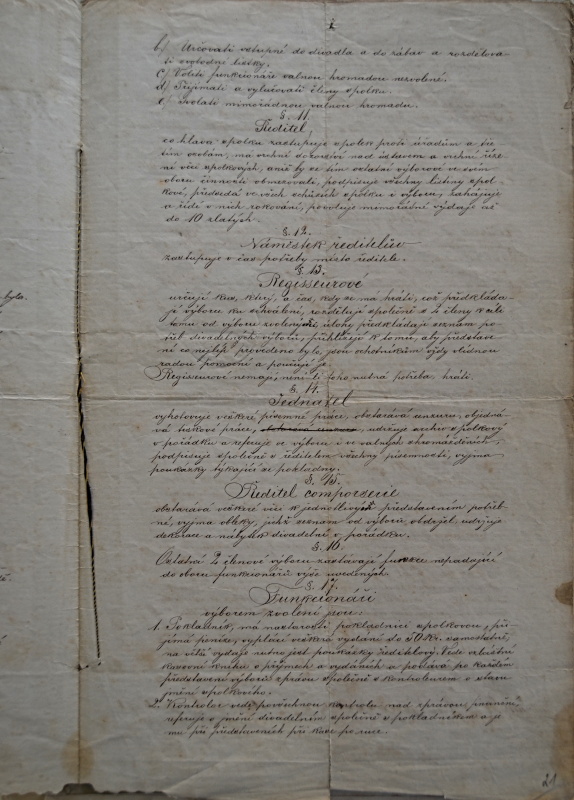 b) Určovati vstupné do divadla a do zábav a rozdělova-
ti svobodné lístky.
c) Voliti funkcionáře valnou hromadou nezvolené.
d) Přijímati a vylučovati členy spolku.
e) Svolati mimořádnou valnou hromadu.
§. 11.
Ředitel,
co hlava spolku zastupuje spolek proti úřadům a tře-
tím osobám, má vrchní dozorství nad ústavem a vrchní říze-
ní věcí spolkových, aniž by se tím ostatní výborové ve svém
oboru činnosti obmezovali, podpisuje všechny listiny spol-
kové, předsedá ve všech schůzích spolku i výboru, zahajuje
a řídí v nich rokování, povoluje mimořádné výdaje až
do 10 zlatých.
§. 12.
Náměstek ředitelův
zastupuje v čas potřeby místo ředitele.
§. 13.
Regisseurové
určují kus, který, a čas, kdy se má hráti, což předkláda-
jí výboru ku schválení, rozdělují společně s 2 členy k cíli
tomu od výboru zvolenými úlohy předkládají seznam po-
třeb divadelných výboru, přihlížejí k tomu, aby představe-
ní co nejlépe provedeno bylo, jsou ochotníkům vždy vlídnou
radou pomocni a poučují je.
Regisseurové nemají, není-li toho nutná potřeba, hráti.
§. 14.
Jednatel
vyhotovuje veškeré písemné práce, obstarává censuru, objedná-
vá tiskové práce, udržuje archiv spolkový
v pořádku a referuje ve výboru i ve valných shromážděních,
podpisuje společně s ředitelem všechny písemnosti, vyjma
poukázky týkající se pokladny.
§. 15.
Ředitel comparserie
obstarává veškeré věci k jednotlivým představením potřeb-
né, vyjma obleky, jichž seznam od výboru obdržel, udržuje
dekorace a nábytek divadelní v pořádku.
§. 16.
Ostatní 2 členové výboru zastávají funkce nepadající
do oboru funkcionářů výše uvedených.
§. 17.
Funkcionáři
výborem zvolení jsou:
1. Pokladník, má na starosti pokladnici spolkovou, při-
jímá peníze, vyplácí veškerá vydání do 50 Kr. samostatně,
na větší vydaje nutno jest poukázky ředitelovy. Vede zvláštní
kasovní knihu o příjmech a vydáních a podává po každém
představení výboru zprávu společně s kontrolorem o stavu
jmění spolkového.
2. Kontrolor vede povšechnou kontrolu nad správou jmění,
referuje o jmění divadelním společně s pokladníkem a je
mu při představeních při kase po ruce.
21
bylo.